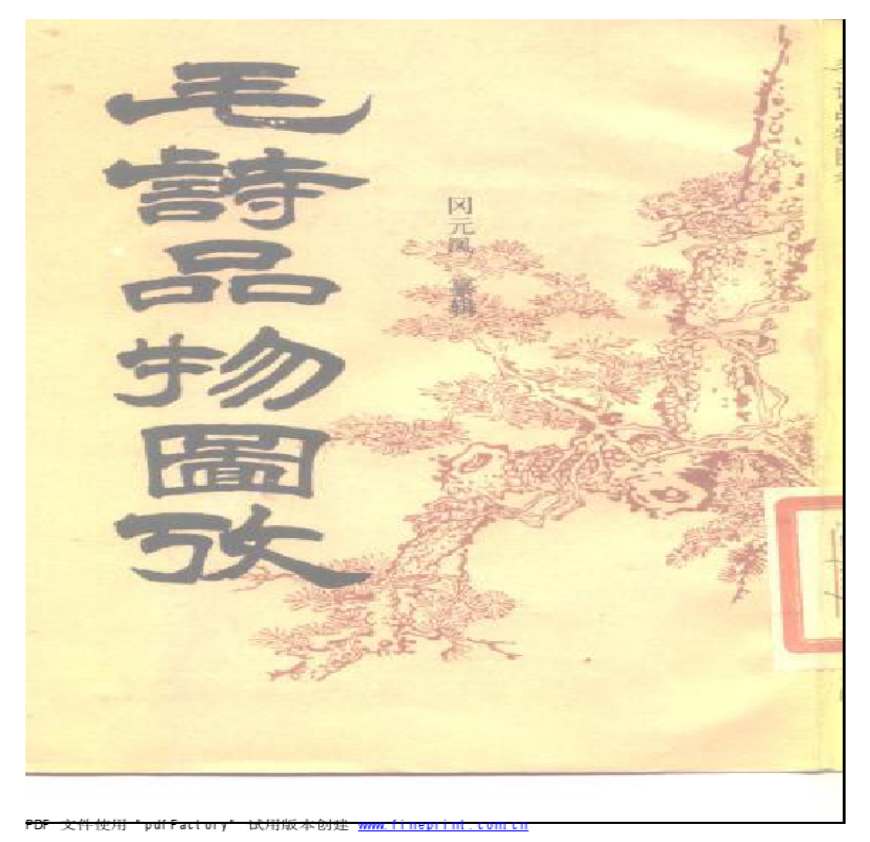 毛詩品物圖攷
冈元凤 纂辑
PDF 文件使用 "pdfFactory" 试用版本创建 www.fineprint.com.cn